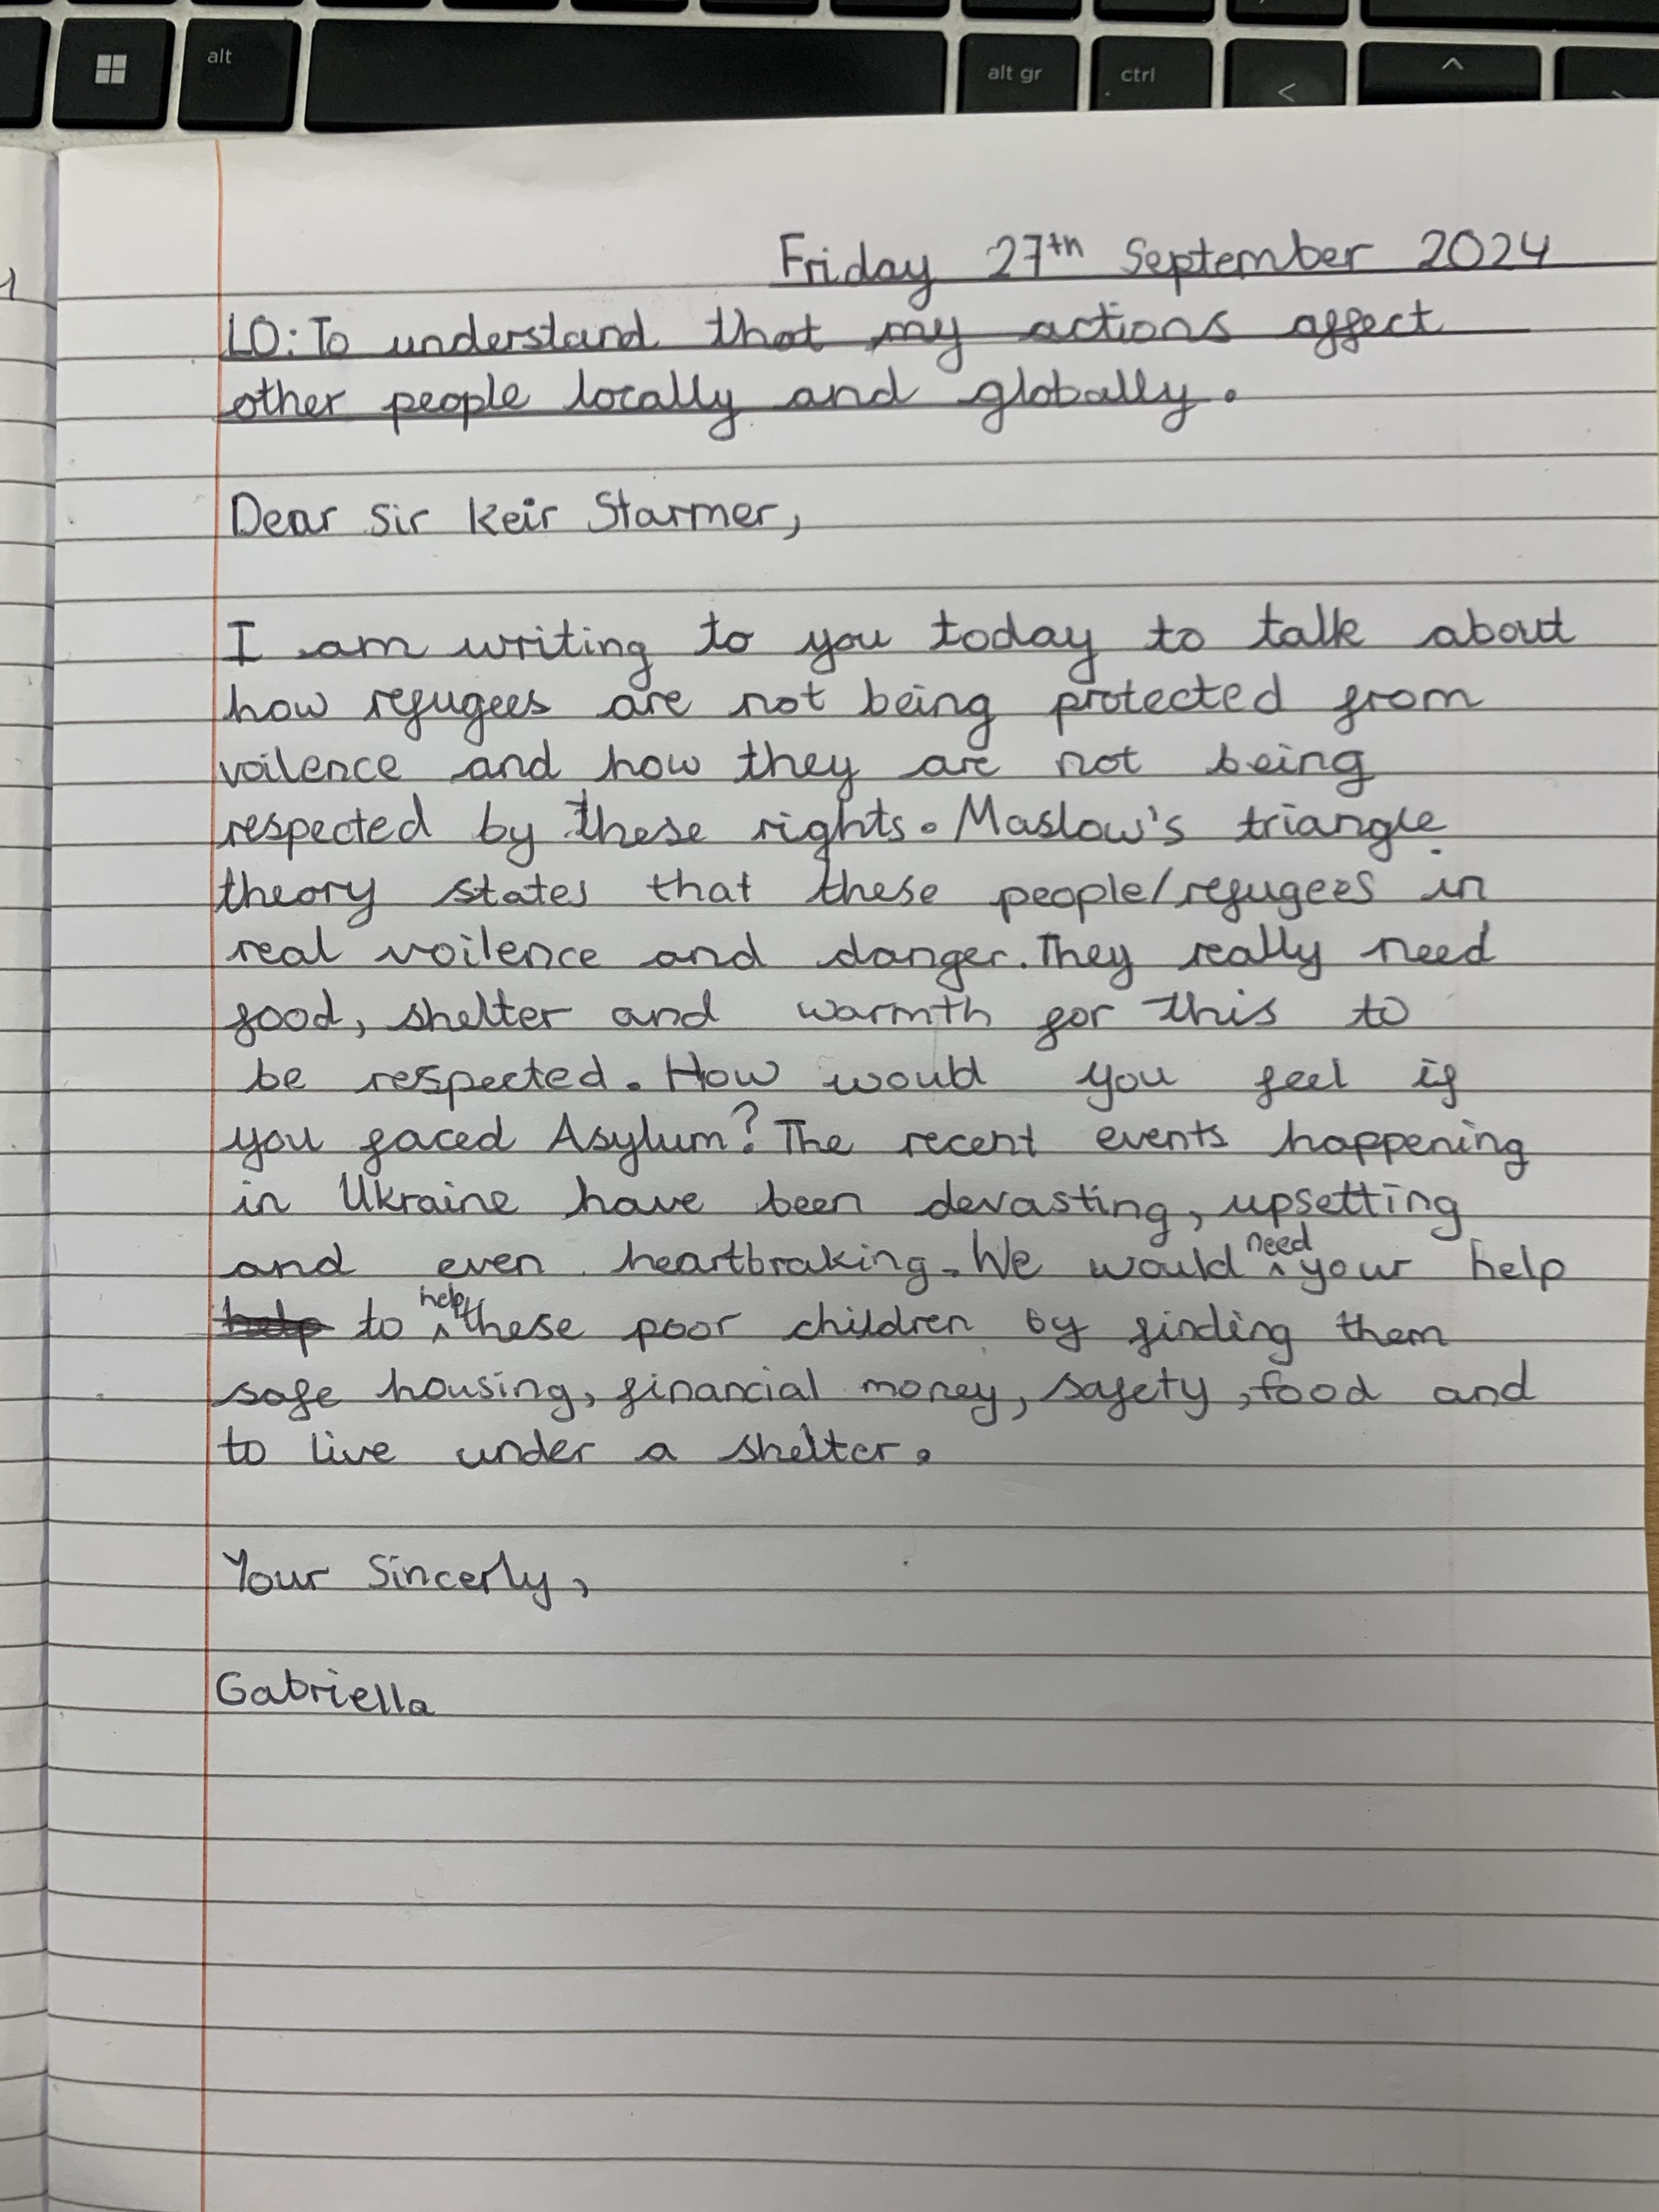 alt
alt gr
ctrl
Friday 27th September 2024
LO: To understand that my actions affect
other people locally and globally.
Dear Sir Keir Starmer,
I am writing to you today to talk about
how refugees are not being protected from
voilence and how they are not being
respected by these rights. Maslow's triangle
theory states that these people/refugees in
real voilence and danger. They really need
food, shelter and warmth for this to
be respected. How would you feel if
you faced Asylum? The recent events happening
in Ukraine have been devasting, upsetting
and even heartbraking. We would need your help
help to help these poor children by finding them
safe housing, financial money, safety, food and
to live under a shelter.
Your Sincerly,
Gabriella